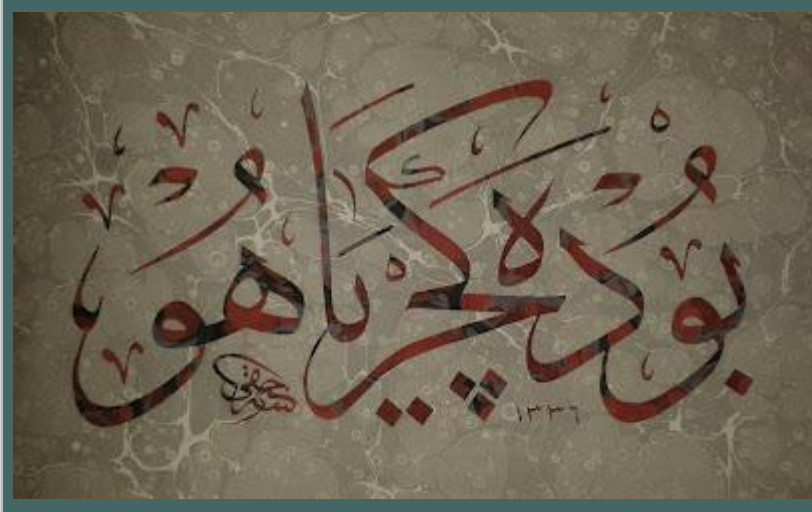 بوده كچر ياهو
١٣٣٦